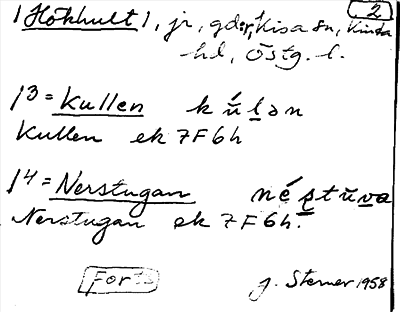 1 Hökhult 1, jr, gd i Kisa sn, Kinda 2
hd, Östg. l.
1³ = Kullen kúlən
Kullen ek 7F6h
1⁴ = Nerstugan néstuva
Nerstugan ek 7F6h.
Forts
J. Sterner 1958